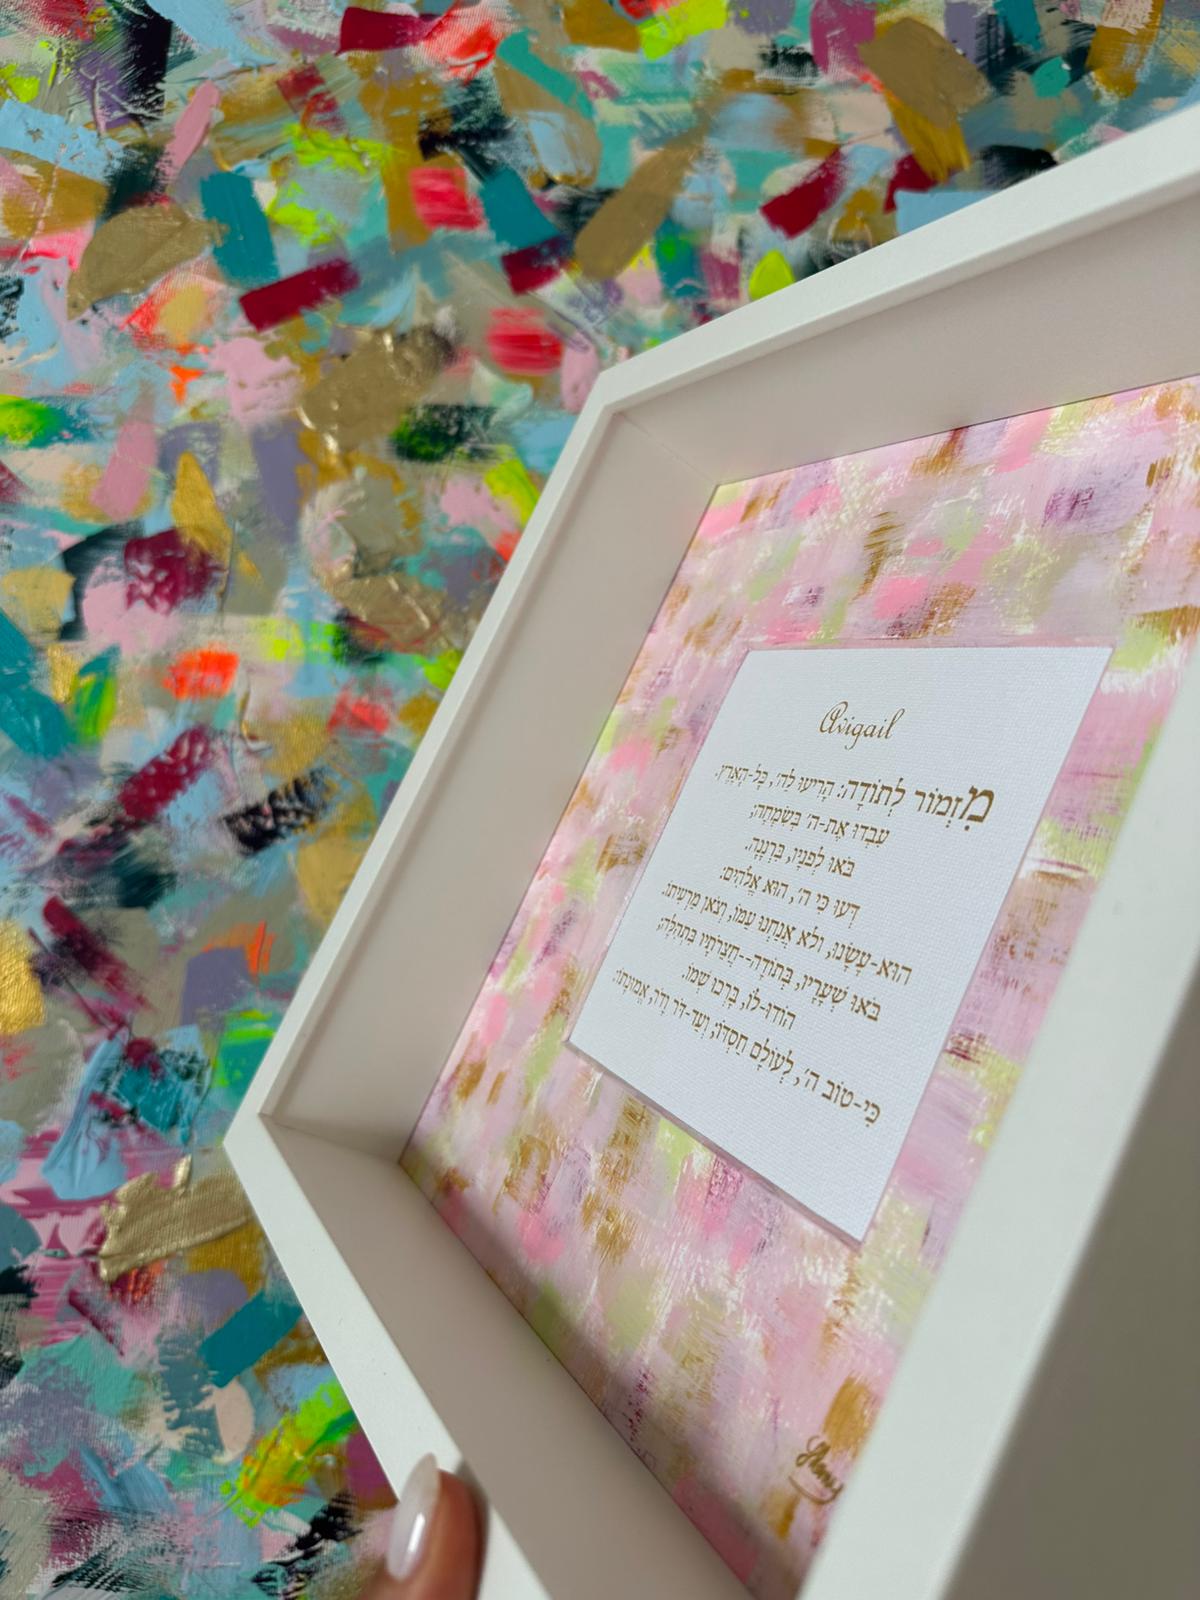 Avigail
מִזְמוֹר לְתוֹדָה: הָרִיעוּ לַה', כָּל-הָאָרֶץ.
עִבְדוּ אֶת-ה' בְּשִׂמְחָה;
בֹּאוּ לְפָנָיו, בִּרְנָנָה.
דְּעוּ כִּי ה', הוּא אֱלֹהִים:
הוּא-עָשָׂנוּ, וְלֹא אֲנַחְנוּ עַמּוֹ, וְצֹאן מַרְעִיתוֹ.
בֹּאוּ שְׁעָרָיו, בְּתוֹדָה--חֲצֵרֹתָיו בִּתְהִלָּה;
הוֹדוּ-לוֹ, בָּרְכוּ שְׁמוֹ.
כִּי-טוֹב ה', לְעוֹלָם חַסְדּוֹ; וְעַד-דֹּר וָדֹר, אֱמוּנָתוֹ.